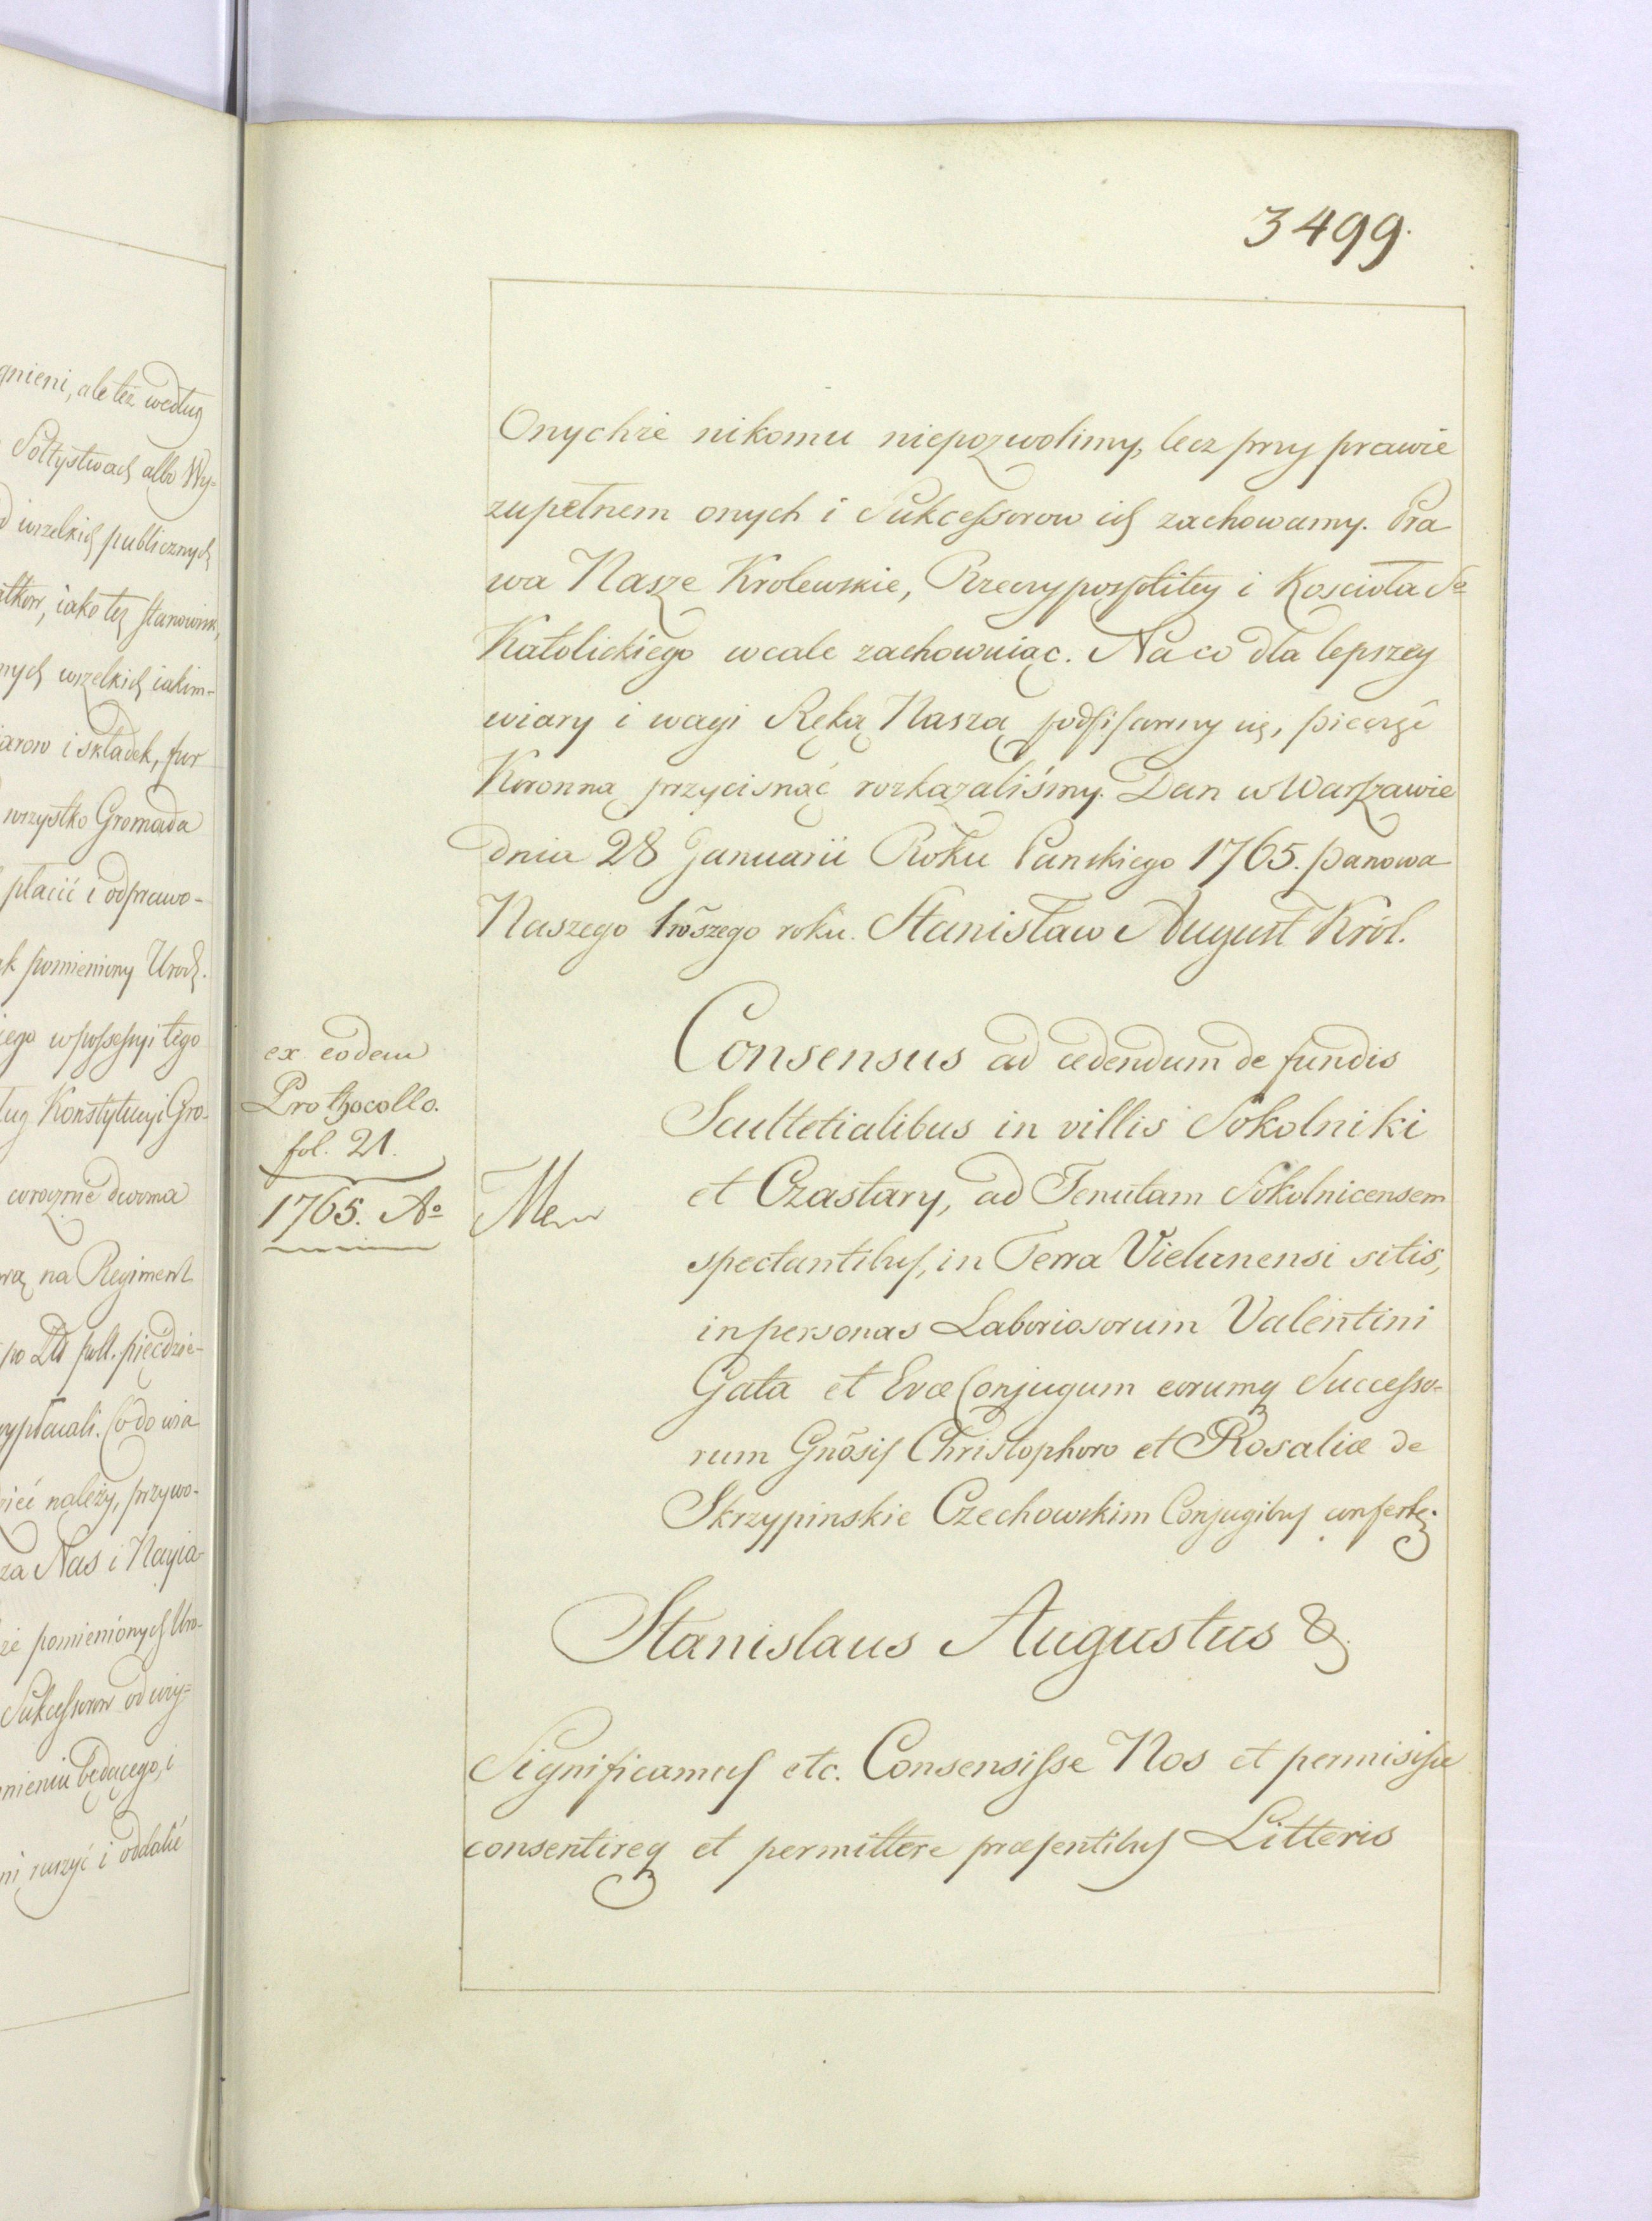 gnieni, ale też według
Sołtystwach albo Wy=
wszelkich publicznych
iako też stanowisk,
nych wszelkich iakim-
arow i składek, fur
wszystko Gromada
płacić i odprawo-
k pomieniony Urodz.
iego w possessyi tego
ług Konstytucyi Gro-
corocznie dwoma
na Regiment
po Zł. poll. pięćdzie-
Co do wia
ieć należy, przywo-
za Nas i Nayia-
że pomienionych Uro-
Sukcessorow od uży=
mieniu będącego, i
ni ruszyć i oddalić
3499.
Onychże nikomu niepozwolimy, lecz przy prawie
zupełnem onych i Sukcessorow ich zachowamy. Pra
wa Nasze Krolewskie, Rzeczypospolitey i Kościoła So
Katolickiego wcale zachowuiąc. Na co dla lepszey
wiary i wagi Ręką Naszą podpisawszy się, pieczęć
Koronną przycisnąć rozkazaliśmy. Dan w Warszawie
dnia 28 Januarii Roku Panskiego 1765. panowa
Naszego 1wszego roku. Stanisław August Król.
ex eodem
Prothocollo.
fol. 21.
1765. Ao
Consensus ad cedendum de fundis
Scultetialibus in villis Sokolniki
et Czastary, ad Tenutam Sokolnicensem
spectantibus, in Terra Vielunensi sitis,
in personas Laboriosorum Valentini
Gała et Evæ Conjugum eorumq Successo-
rum Gnõsis Christophoro et Rosaliæ de
Skrzypinskie Czechowskim Conjugibus confertr
Stanislaus Augustus &
Significamus etc. Consensisse Nos et permisisse
consentireq et permittere præsentibus Litteris